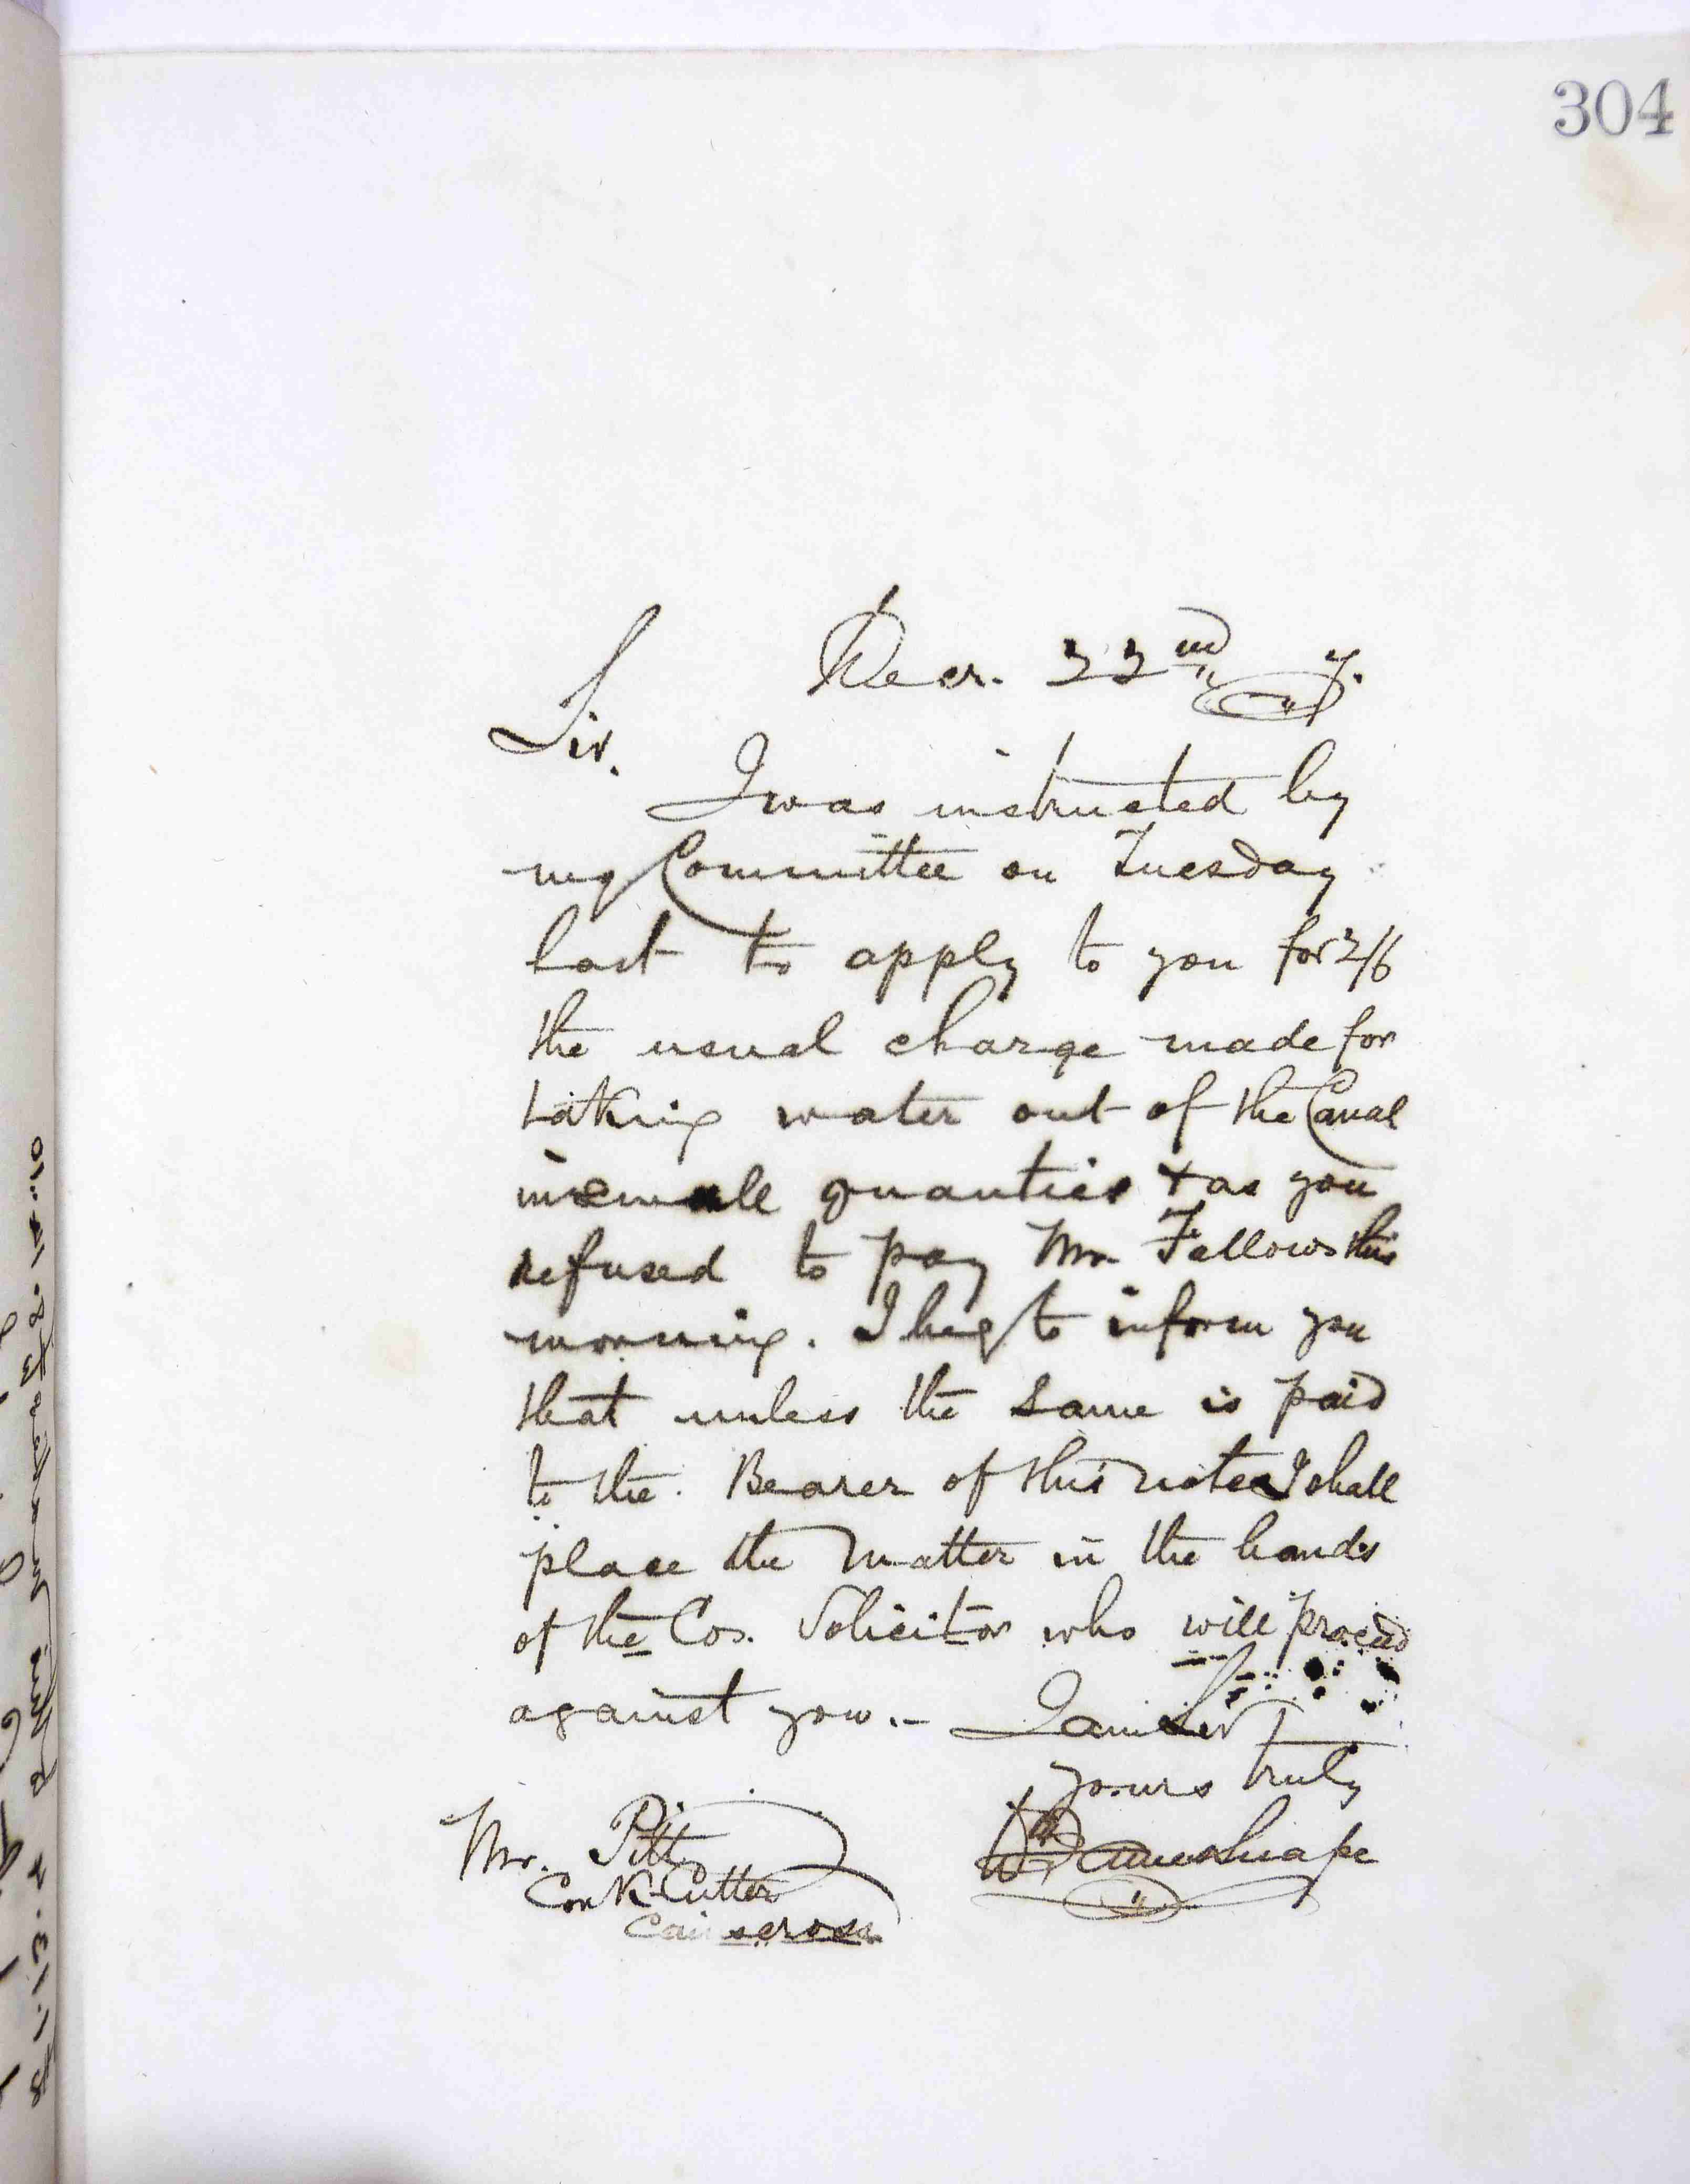 304
Decr. 22nd 7.
Sir.
I was instructed by
my Committee on Tuesday
last to apply to you for 2/6
the usual charge made for
taking water out of the Canal
in small quanties & as you
refused to pay Mr Fellows this
morning. I beg to inform you
that unless the same is paid
to the Bearer of this note I shall
place the Matter in the hands
of the Cos. Solicitor who will proceed
against you. - I am Sir
yours truly
Mr. Pitt
Cork Cutter
Cainscross
Snape